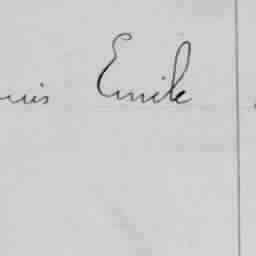 uis Emile